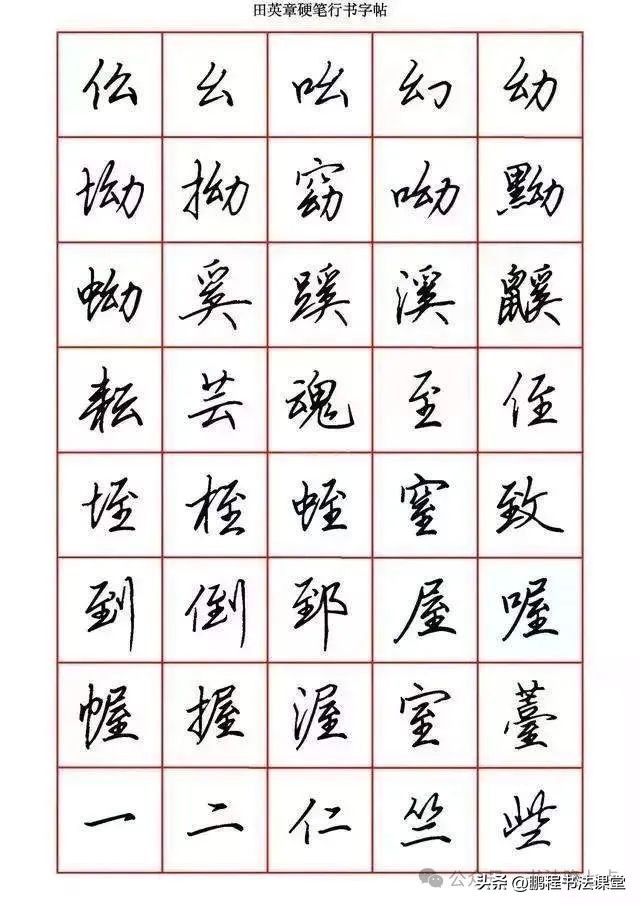 田英章硬笔行书字帖
仫 幺 吆 幻 幼
坳 拗 窈 呦 黝
蚴 奚 蹊 溪 鼷
耘 芸 魂 至 侄
垤 桎 蛭 窒 致
到 倒 郅 屋 喔
幄 握 渥 室 薹
一 二 仁 竺 些
公众号
头条 @鹏程书法课堂